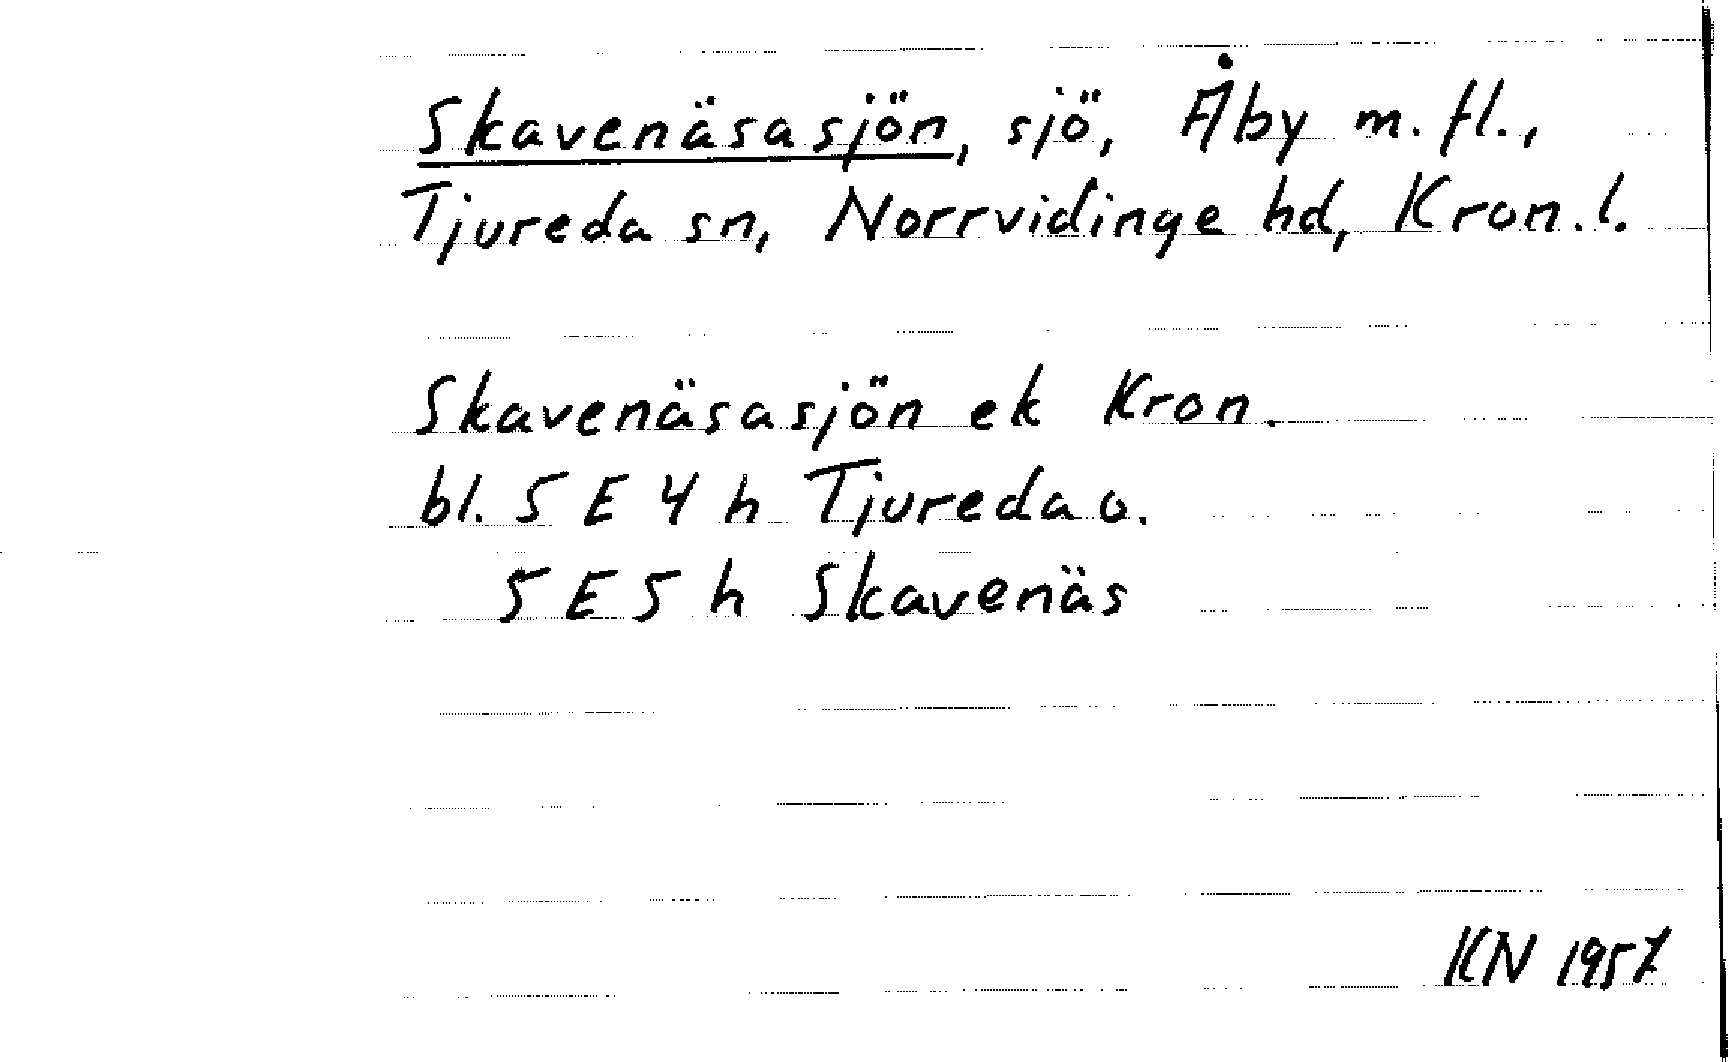 Skavenäsasjön, sjö, Åby m. fl.,
Tjureda sn, Norrvidinge hd, Kron. l.
Skavenäsasjön ek Kron.
bl. 5 E 4 h Tjureda o.
5 E 5 h Skavenäs
KN 1957